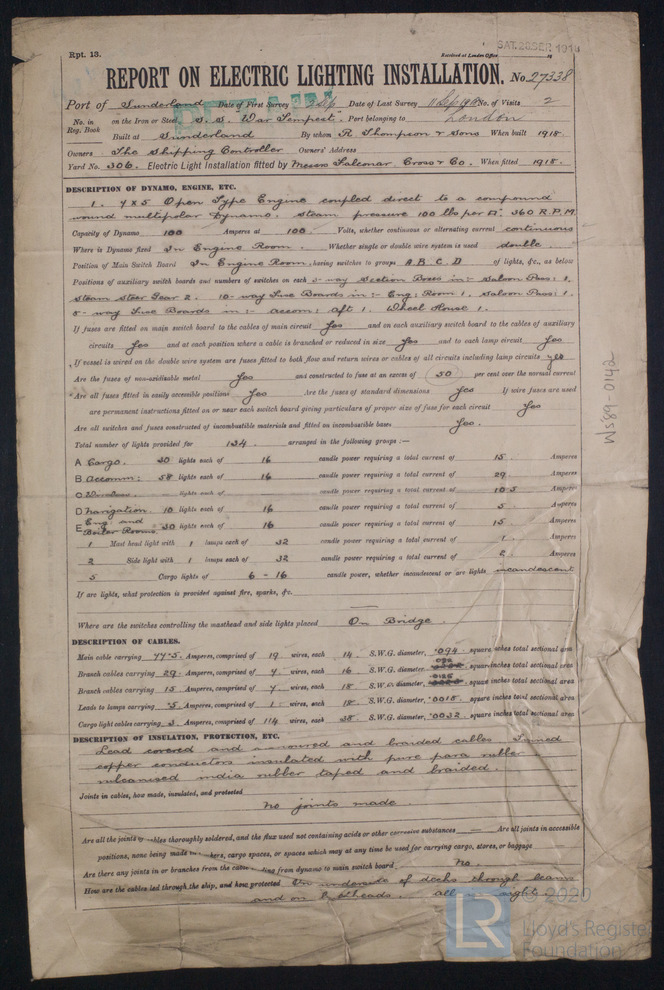 Rpt. 13.
Received at London Office
SAT. 28 SEP. 1918
REPORT ON ELECTRIC LIGHTING INSTALLATION. No. 27338
Port of Sunderland Date of First Survey Sep Date of Last Survey 11 Sep 1918 No. of Visits 2
No. in Reg. Book on the Iron or Steel S.S. War Tempest. Port belonging to London
Built at Sunderland By whom R Thompson & Sons When built 1918.
Owners The Shipping Controller Owners' Address
Yard No. 306. Electric Light Installation fitted by Messrs Falconar Cross & Co. When fitted 1918.
DESCRIPTION OF DYNAMO, ENGINE, ETC.
1. 7 x 5 Open Type Engine coupled direct to a compound
wound multipolar Dynamo. steam pressure 100 lbs per □". 360 R.P.M.
Capacity of Dynamo 100 Amperes at 100 Volts, whether continuous or alternating current continuous
Where is Dynamo fixed In Engine Room. Whether single or double wire system is used double.
Position of Main Switch Board In Engine Room. having switches to groups A B C D of lights, &c., as below
Positions of auxiliary switch boards and numbers of switches on each -way Section Boxes in:- Saloon Pass: 1,
Steam Steer Gear 2. 10-way Fuse Boards in:- Eng: Room 1, Saloon Pass: 1.
-way Fuse Boards in:- Accom: Aft 1. Wheel House 1.
If fuses are fitted on main switch board to the cables of main circuit Yes and on each auxiliary switch board to the cables of auxiliary
circuits Yes and at each position where a cable is branched or reduced in size Yes and to each lamp circuit Yes
If vessel is wired on the double wire system are fuses fitted to both flow and return wires or cables of all circuits including lamp circuits yes
Are the fuses of non-oxidisable metal Yes and constructed to fuse at an excess of 50 per cent over the normal current
Are all fuses fitted in easily accessible positions Yes Are the fuses of standard dimensions Yes If wire fuses are used
are permanent instructions fitted on or near each switch board giving particulars of proper size of fuse for each circuit Yes
Are all switches and fuses constructed of incombustible materials and fitted on incombustible bases Yes.
Total number of lights provided for 134. arranged in the following groups :—
A Cargo. 30 lights each of 16 candle power requiring a total current of 15 Amperes
B Accomm: 58 lights each of 16 candle power requiring a total current of 29 Amperes
C Wireless — lights each of — candle power requiring a total current of 10.5 Amperes
D Navigation. 10 lights each of 16 candle power requiring a total current of 5 Amperes
E Eng. and Boiler Rooms 30 lights each of 16 candle power requiring a total current of 15 Amperes
1 Mast head light with 1 lamps each of 32 candle power requiring a total current of 1 Amperes
2 Side light with 1 lamps each of 32 candle power requiring a total current of 2 Amperes
5 Cargo lights of 6 - 16 candle power, whether incandescent or arc lights incandescent
If arc lights, what protection is provided against fire, sparks, &c.
Where are the switches controlling the masthead and side lights placed On Bridge.
DESCRIPTION OF CABLES.
Main cable carrying 77.5 Amperes, comprised of 19 wires, each 14 S.W.G. diameter, .094 square inches total sectional area
Branch cables carrying 29 Amperes, comprised of 7 wires, each 16 S.W.G. diameter, square inches total sectional area
Branch cables carrying 15 Amperes, comprised of 7 wires, each 18 S.W.G. diameter, square inches total sectional area
Leads to lamps carrying .5 Amperes, comprised of 1 wires, each 18 S.W.G. diameter, .0018 square inches total sectional area
Cargo light cables carrying 3 Amperes, comprised of 114 wires, each 38 S.W.G. diameter, .0032 square inches total sectional area
DESCRIPTION OF INSULATION, PROTECTION, ETC.
Lead covered and armoured and braided cables Tinned
copper conductors insulated with pure para rubber
vulcanised india rubber taped and braided.
Joints in cables, how made, insulated, and protected
No joints made.
Are all the joints of cables thoroughly soldered, and the flux used not containing acids or other corrosive substances — Are all joints in accessible
positions, none being made in bunkers, cargo spaces, or spaces which may at any time be used for carrying cargo, stores, or baggage
Are there any joints in or branches from the cable leading from dynamo to main switch board No.
How are the cables led through the ship, and how protected On underside of decks through beams
and on bulkheads. all right.
W589-0142
LR
© 2020
Lloyd's Register
Foundation